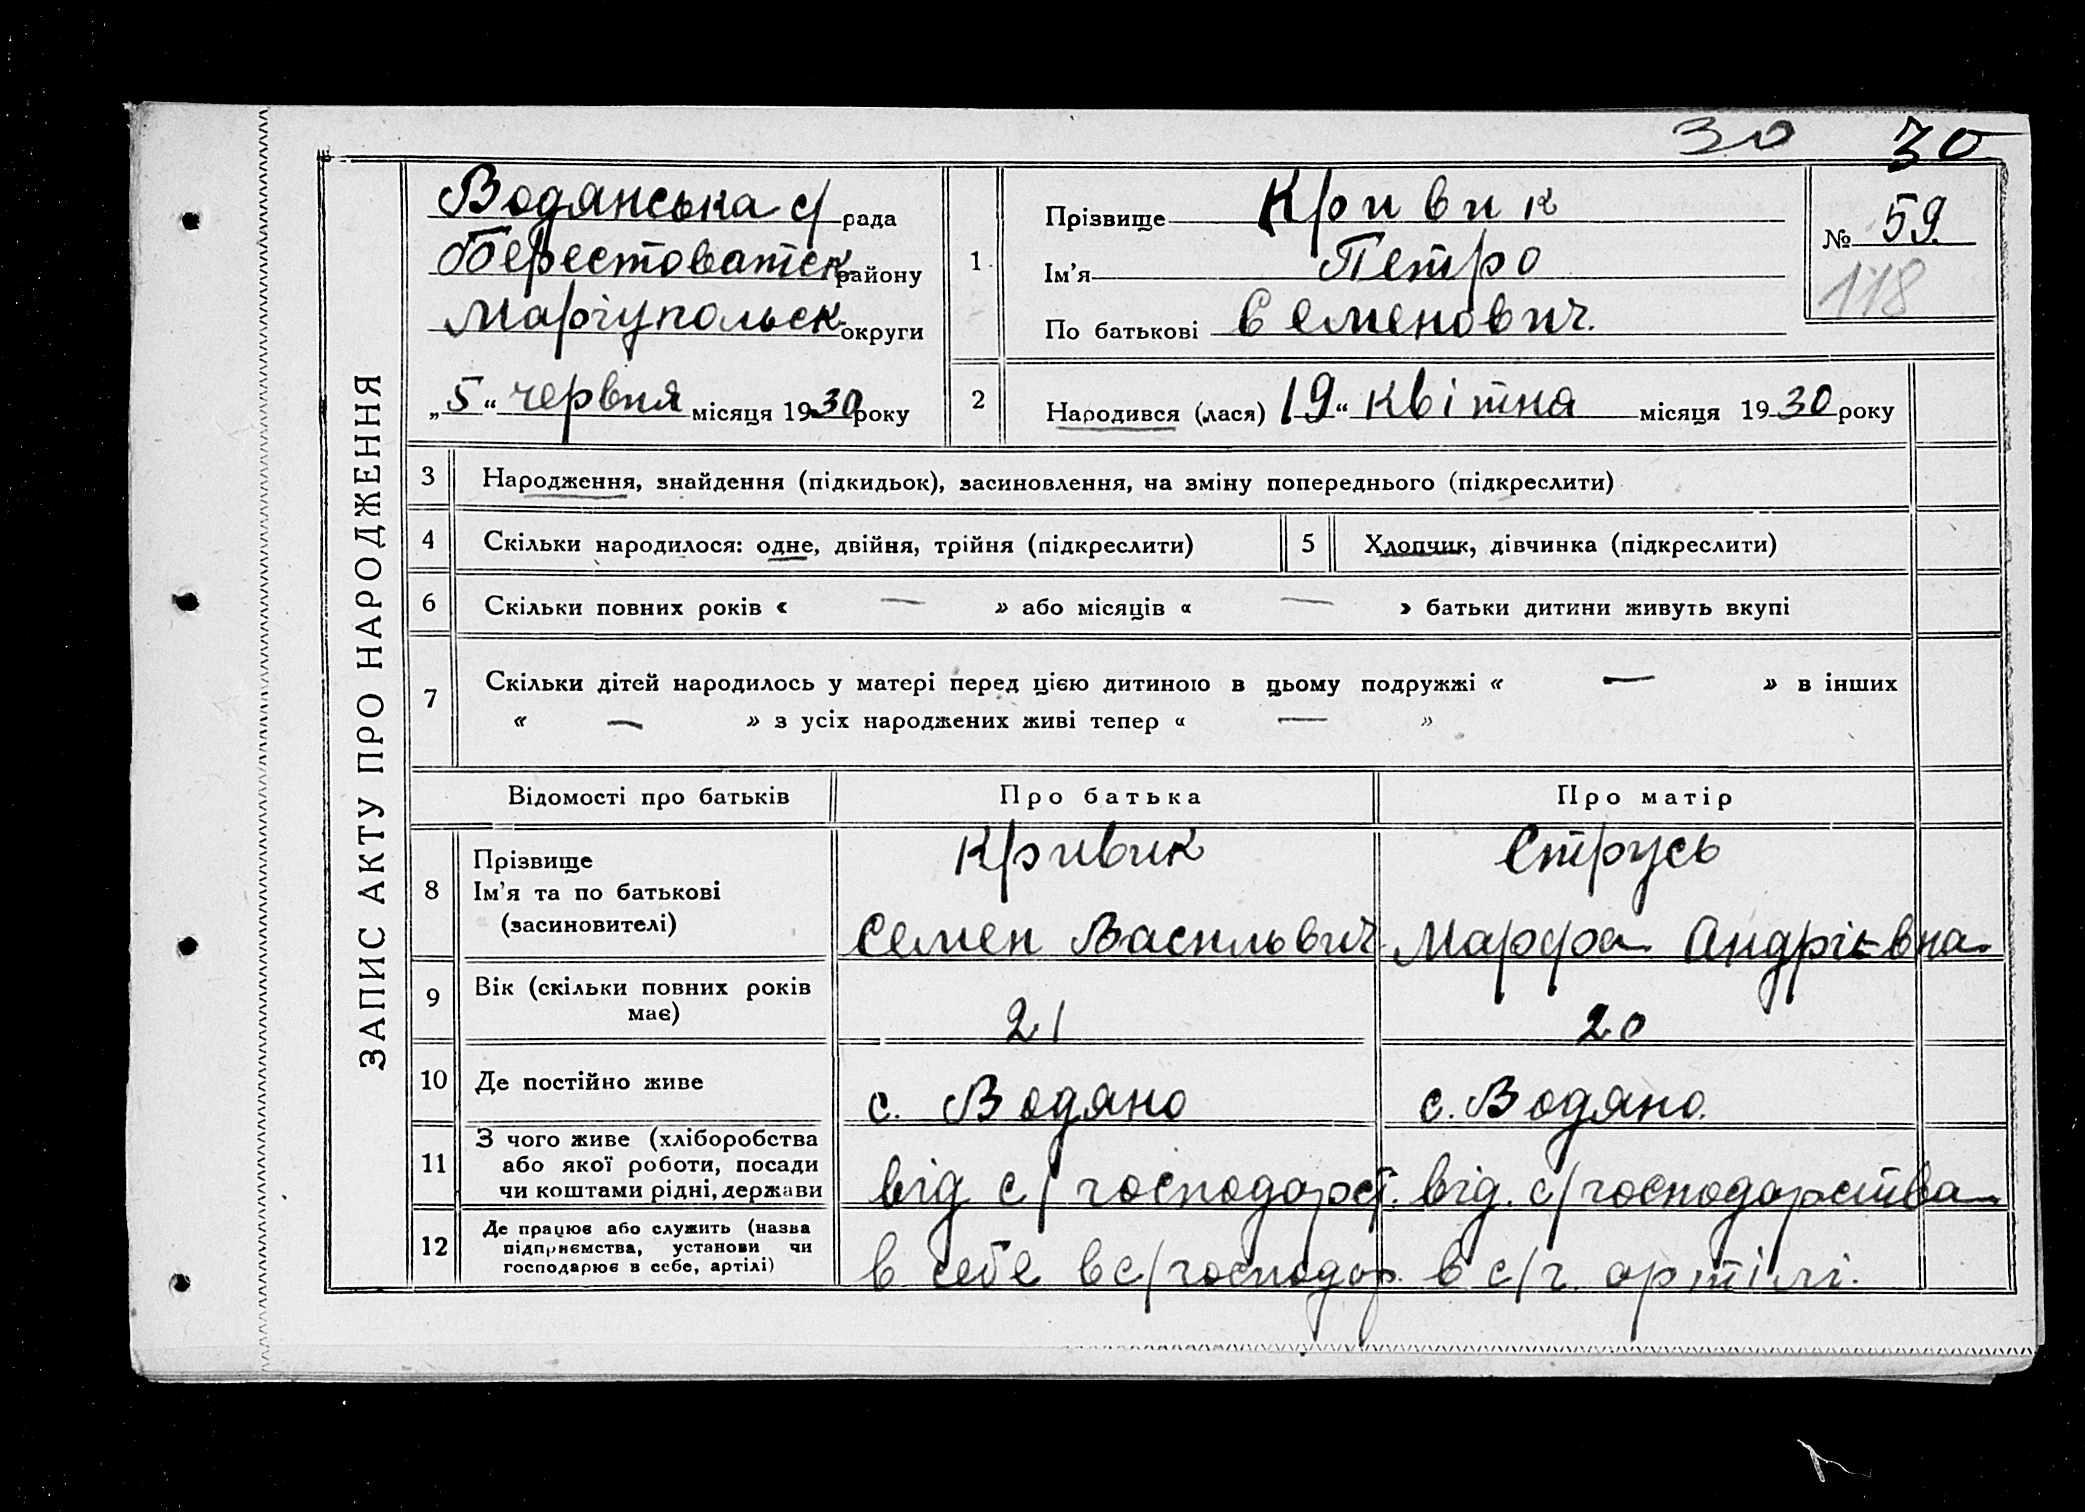 30 30
ЗАПИС АКТУ ПРО НАРОДЖЕННЯ
Водянська с/ рада
Берестоватск району
Маріупольск округи
„ 5 “ червня місяця 1930 року
1
Прізвище Кривик
Ім’я Петро
По батькові Семенович.
№ 59.
118
2 Народився (лася) 19 “ квітня місяця 1930 року
3 Народження, знайдення (підкидьок), засиновлення, на зміну попереднього (підкреслити)
4 Скільки народилося: одне, двійня, трійня (підкреслити) 5 Хлопчик, дівчинка (підкреслити)
6 Скільки повних років « — » або місяців « — » батьки дитини живуть вкупі
7 Скільки дітей народилось у матері перед цією дитиною в цьому подружжі « — » в інших
« — » з усіх народжених живі тепер « — »
Відомості про батьків Про батька Про матір
8 Прізвище Кривик Струсь
Ім’я та по батькові
(засиновителі) Семен Васильвич Марфа Андріевна
9 Вік (скільки повних років
має) 21 20
10 Де постійно живе с. Водяно с. Водяно.
11 З чого живе (хліборобства
або якої роботи, посади
чи коштами рідні, держави від с/господарст. від. с/господарства
12 Де працює або служить (назва
підприємства, установи чи
господарює в себе, артілі) в себе в с/господар. в с/г. артілі.